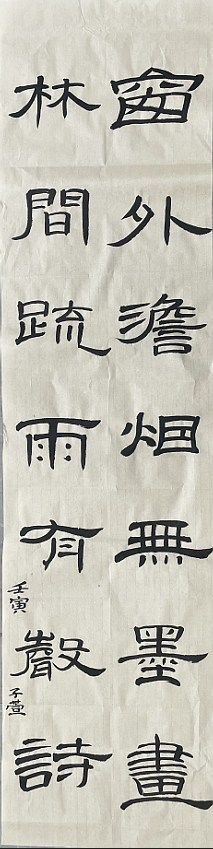 窗外澹烟無墨畫
林間疏雨有聲詩
壬寅 子萱